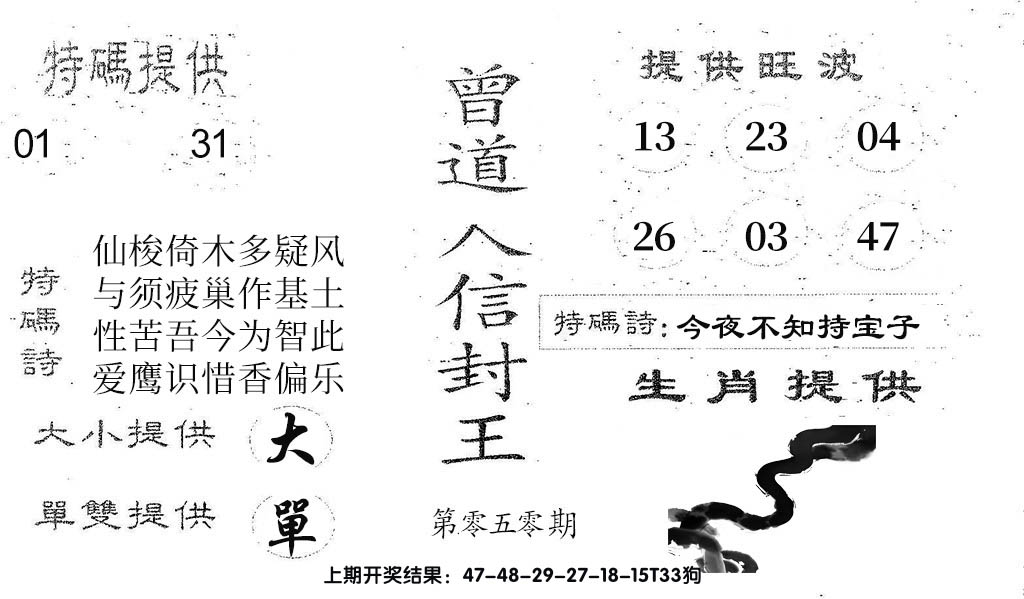 特碼提供
01 31
特碼詩
仙梭倚木多疑风
与须疲巢作基土
性苦吾今为智此
爱鹰识惜香偏乐
大小提供 大
單雙提供 單
曾道人信封王
第零五零期
提供旺波
13 23 04
26 03 47
特碼詩:今夜不知持宝子
生肖提供
上期开奖结果：47-48-29-27-18-15T33狗